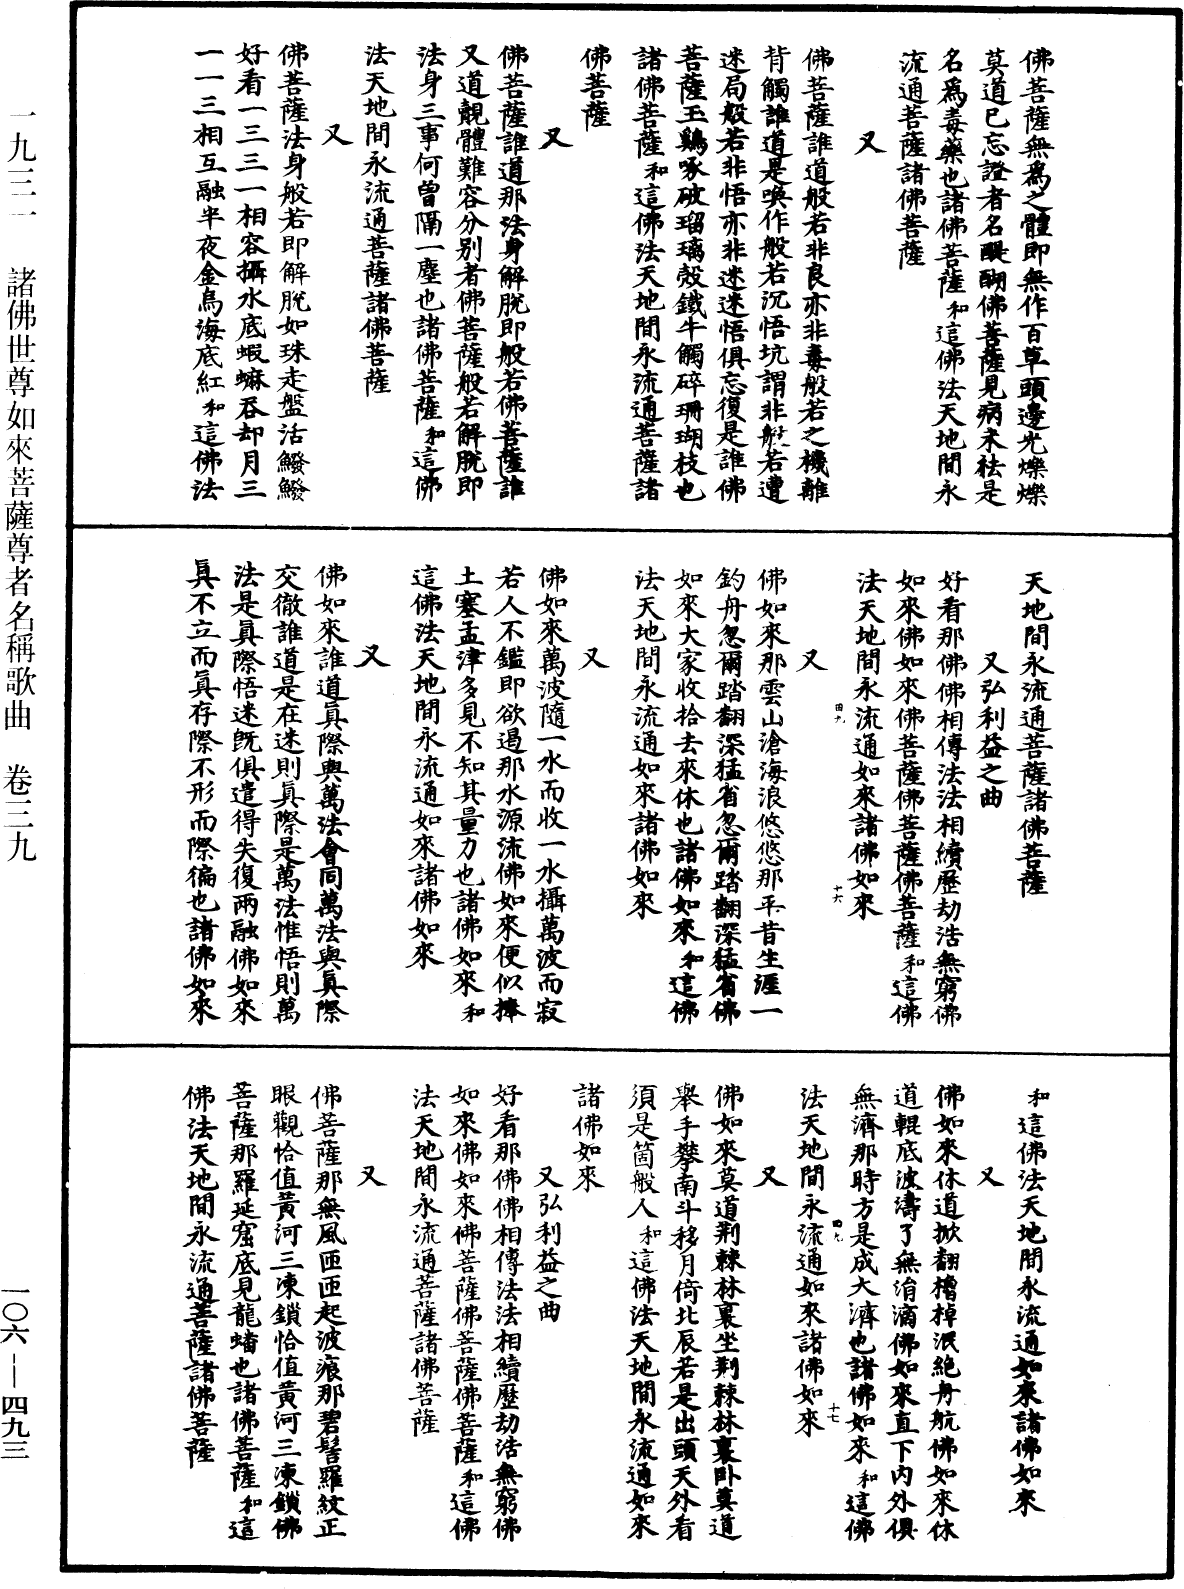 佛菩薩無爲之體即無作百草頭邊光爍爍
莫道已忘證者名醍醐佛菩薩見病未袪是
名爲毒藥也諸佛菩薩和這佛法天地間永
流通菩薩諸佛菩薩
又
佛菩薩誰道般若非良亦非毒般若之機離
背觸誰道是喚作般若沉悟坑謂非般若遭
迷局般若非悟亦非迷迷悟俱忘復是誰佛
菩薩玉鷄啄破瑠璃殼鐵牛觸碎珊瑚枝也
諸佛菩薩和這佛法天地間永流通菩薩諸
佛菩薩
又
佛菩薩誰道那法身解脫即般若佛菩薩誰
又道覿體難容分别者佛菩薩般若解脫即
法身三事何曾隔一塵也諸佛菩薩和這佛
法天地間永流通菩薩諸佛菩薩
又
佛菩薩法身般若即解脫如珠走盤活鱍鱍
好看一三三一相容攝水底蝦蟆吞却月三
一一三相互融半夜金烏海底紅和這佛法
天地間永流通菩薩諸佛菩薩
又弘利益之曲
好看那佛佛相傳法法相續歷劫浩無窮佛
如來佛如來佛菩薩佛菩薩佛菩薩和這佛
法天地間永流通如來諸佛如來
田九
十六
又
佛如來那雲山滄海浪悠悠那平昔生涯一
釣舟忽爾踏翻深猛省忽爾踏翻深猛省佛
如來大家收拾去來休也諸佛如來和這佛
法天地間永流通如來諸佛如來
又
佛如來萬波隨一水而收一水攝萬波而寂
若人不鑑即欲遏那水源流佛如來便似捧
土塞孟津多見不知其量力也諸佛如來和
這佛法天地間永流通如來諸佛如來
又
佛如來誰道眞際與萬法會同萬法與眞際
交徹誰道是在迷則眞際是萬法惟悟則萬
法是眞際悟迷旣俱遣得失復兩融佛如來
眞不立而眞存際不形而際徧也諸佛如來
和這佛法天地間永流通如來諸佛如來
又
佛如來休道掀翻櫓棹泯絶舟航佛如來休
道輥底波濤了無涓滴佛如來直下內外俱
無濟那時方是成大濟也諸佛如來和這佛
法天地間永流通如來諸佛如來
四九
十七
又
佛如來莫道荆棘林裏坐荆棘林裏卧莫道
舉手攀南斗移月倚北辰若是出頭天外看
須是箇般人和這佛法天地間永流通如來
諸佛如來
又弘利益之曲
好看那佛佛相傳法法相續歷劫浩無窮佛
如來佛如來佛菩薩佛菩薩佛菩薩和這佛
法天地間永流通菩薩諸佛菩薩
又
佛菩薩那無風匝匝起波痕那碧髻羅紋正
眼觀恰值黄河三凍鎖恰值黄河三凍鎖佛
菩薩那羅延窟底見龍蟠也諸佛菩薩和這
佛法天地間永流通菩薩諸佛菩薩
一九三二　諸佛世尊如來菩薩尊者名稱歌曲　卷三九
一〇六—四九三